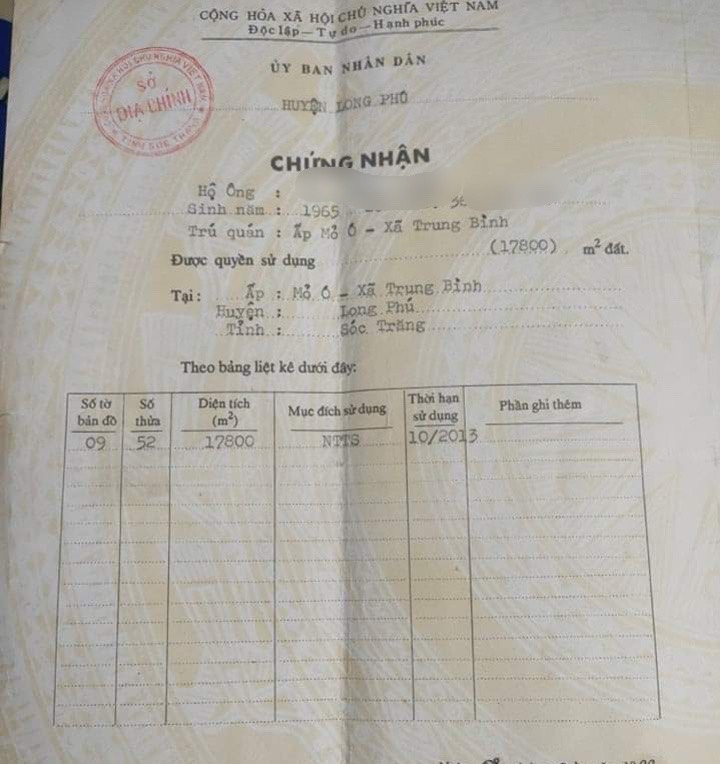 CỘNG HÒA XÃ HỘI CHỦ NGHĨA VIỆT NAM
Độc lập — Tự do — Hạnh phúc
ỦY BAN NHÂN DÂN
SỞ
ĐỊA CHÍNH
TỈNH SÓC TRĂNG
HUYỆN LONG PHÚ
CHỨNG NHẬN
Hộ Ông :
Sinh năm : 1965
Trú quán : Ấp Mỏ Ó - Xã Trung Bình
Được quyền sử dụng (17800) m² đất.
Tại : Ấp : Mỏ Ó - Xã Trung Bình
Huyện : Long Phú
Tỉnh : Sóc Trăng
Theo bảng liệt kê dưới đây:
Số tờ bản đồ Số thửa Diện tích (m²) Mục đích sử dụng Thời hạn sử dụng Phần ghi thêm
09 52 17800 NTTS 10/2013